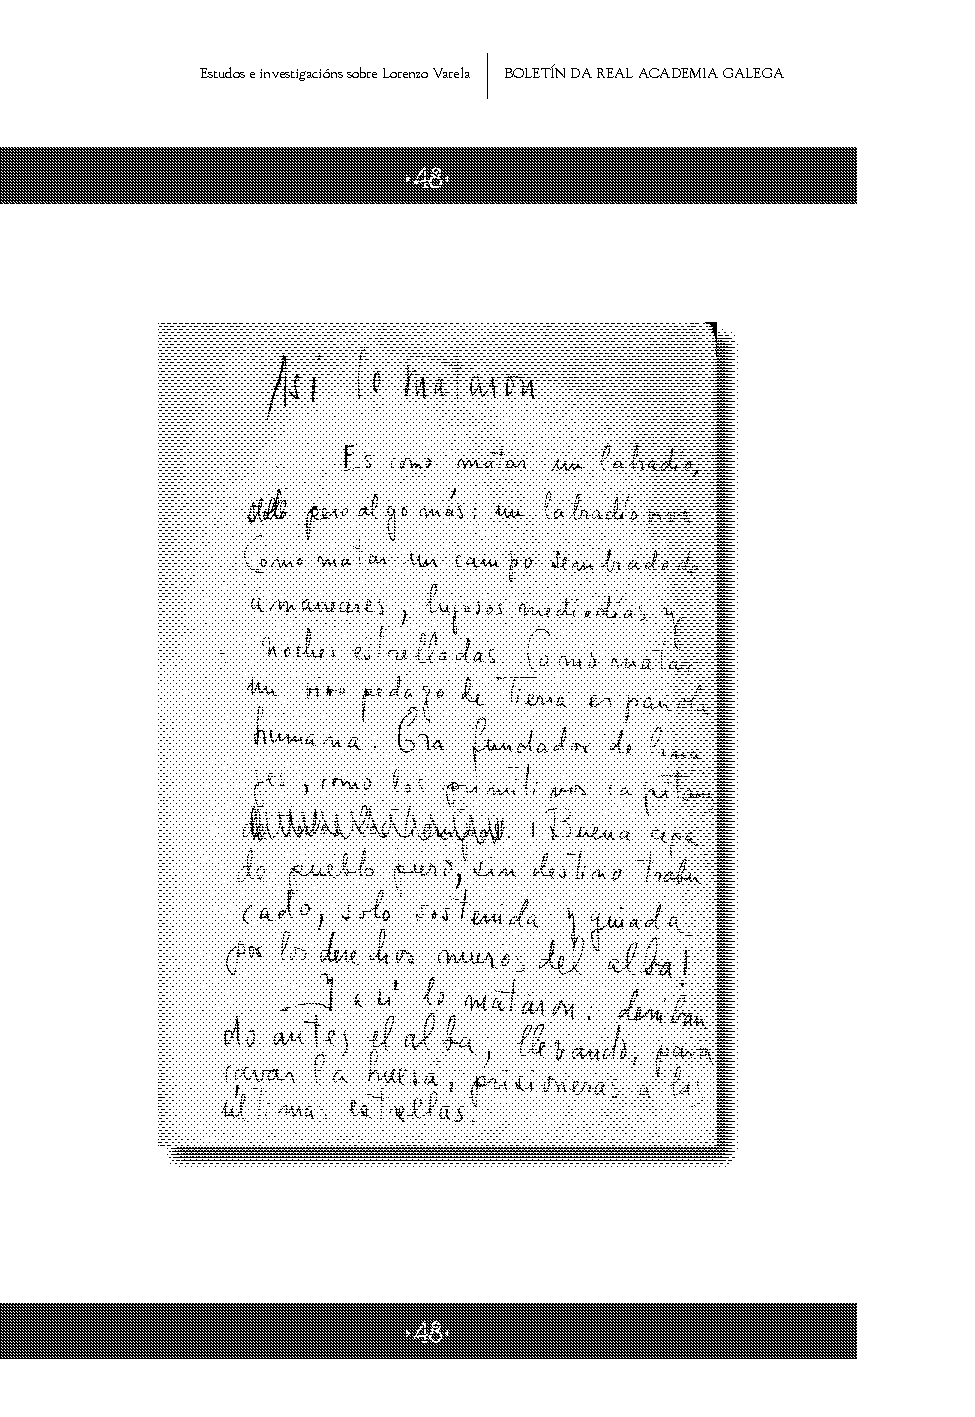 Estudos e investigacións sobre Lorenzo Varela
BOLETÍN DA REAL ACADEMIA GALEGA
·48·
Así lo mataron
Es como matar un labradío,
pero algo más: un labradío
Como matar un campo sembrado de
amaneceres, lujosos mediodías y
noches estrelladas. Como matar
un vivo pedazo de Tierra
humana. Era fundador de lina
jes, como los primitivos capitan
. ¡Buena
do pueblo puro, sin destino trabu
cado, solo sostenida y guiada
por los derechos muros del alba!
Y así lo mataron: derriban
do antes el alba, llevando, para
cavar la huesa, prisioneras a las
últimas estrellas.
·48·